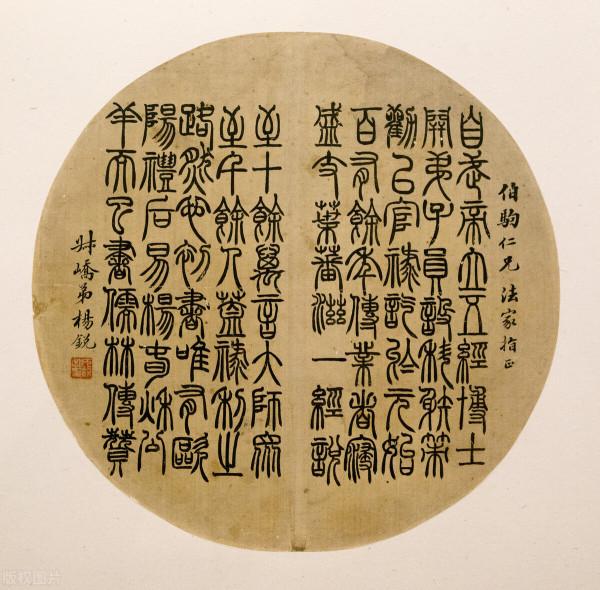 伯駒仁兄 法家指正
自武帝立五經博士
開弟子員設科射策
勸以官祿訖於元始
百有餘年傳業者寖
盛支葉蕃滋一經說
至十餘萬言大師眾
至千餘人蓋祿利之
路然也初書唯有歐
陽禮后易楊春秋公
羊而已書儒林傳贊
叔嶠弟楊銳
版权图片